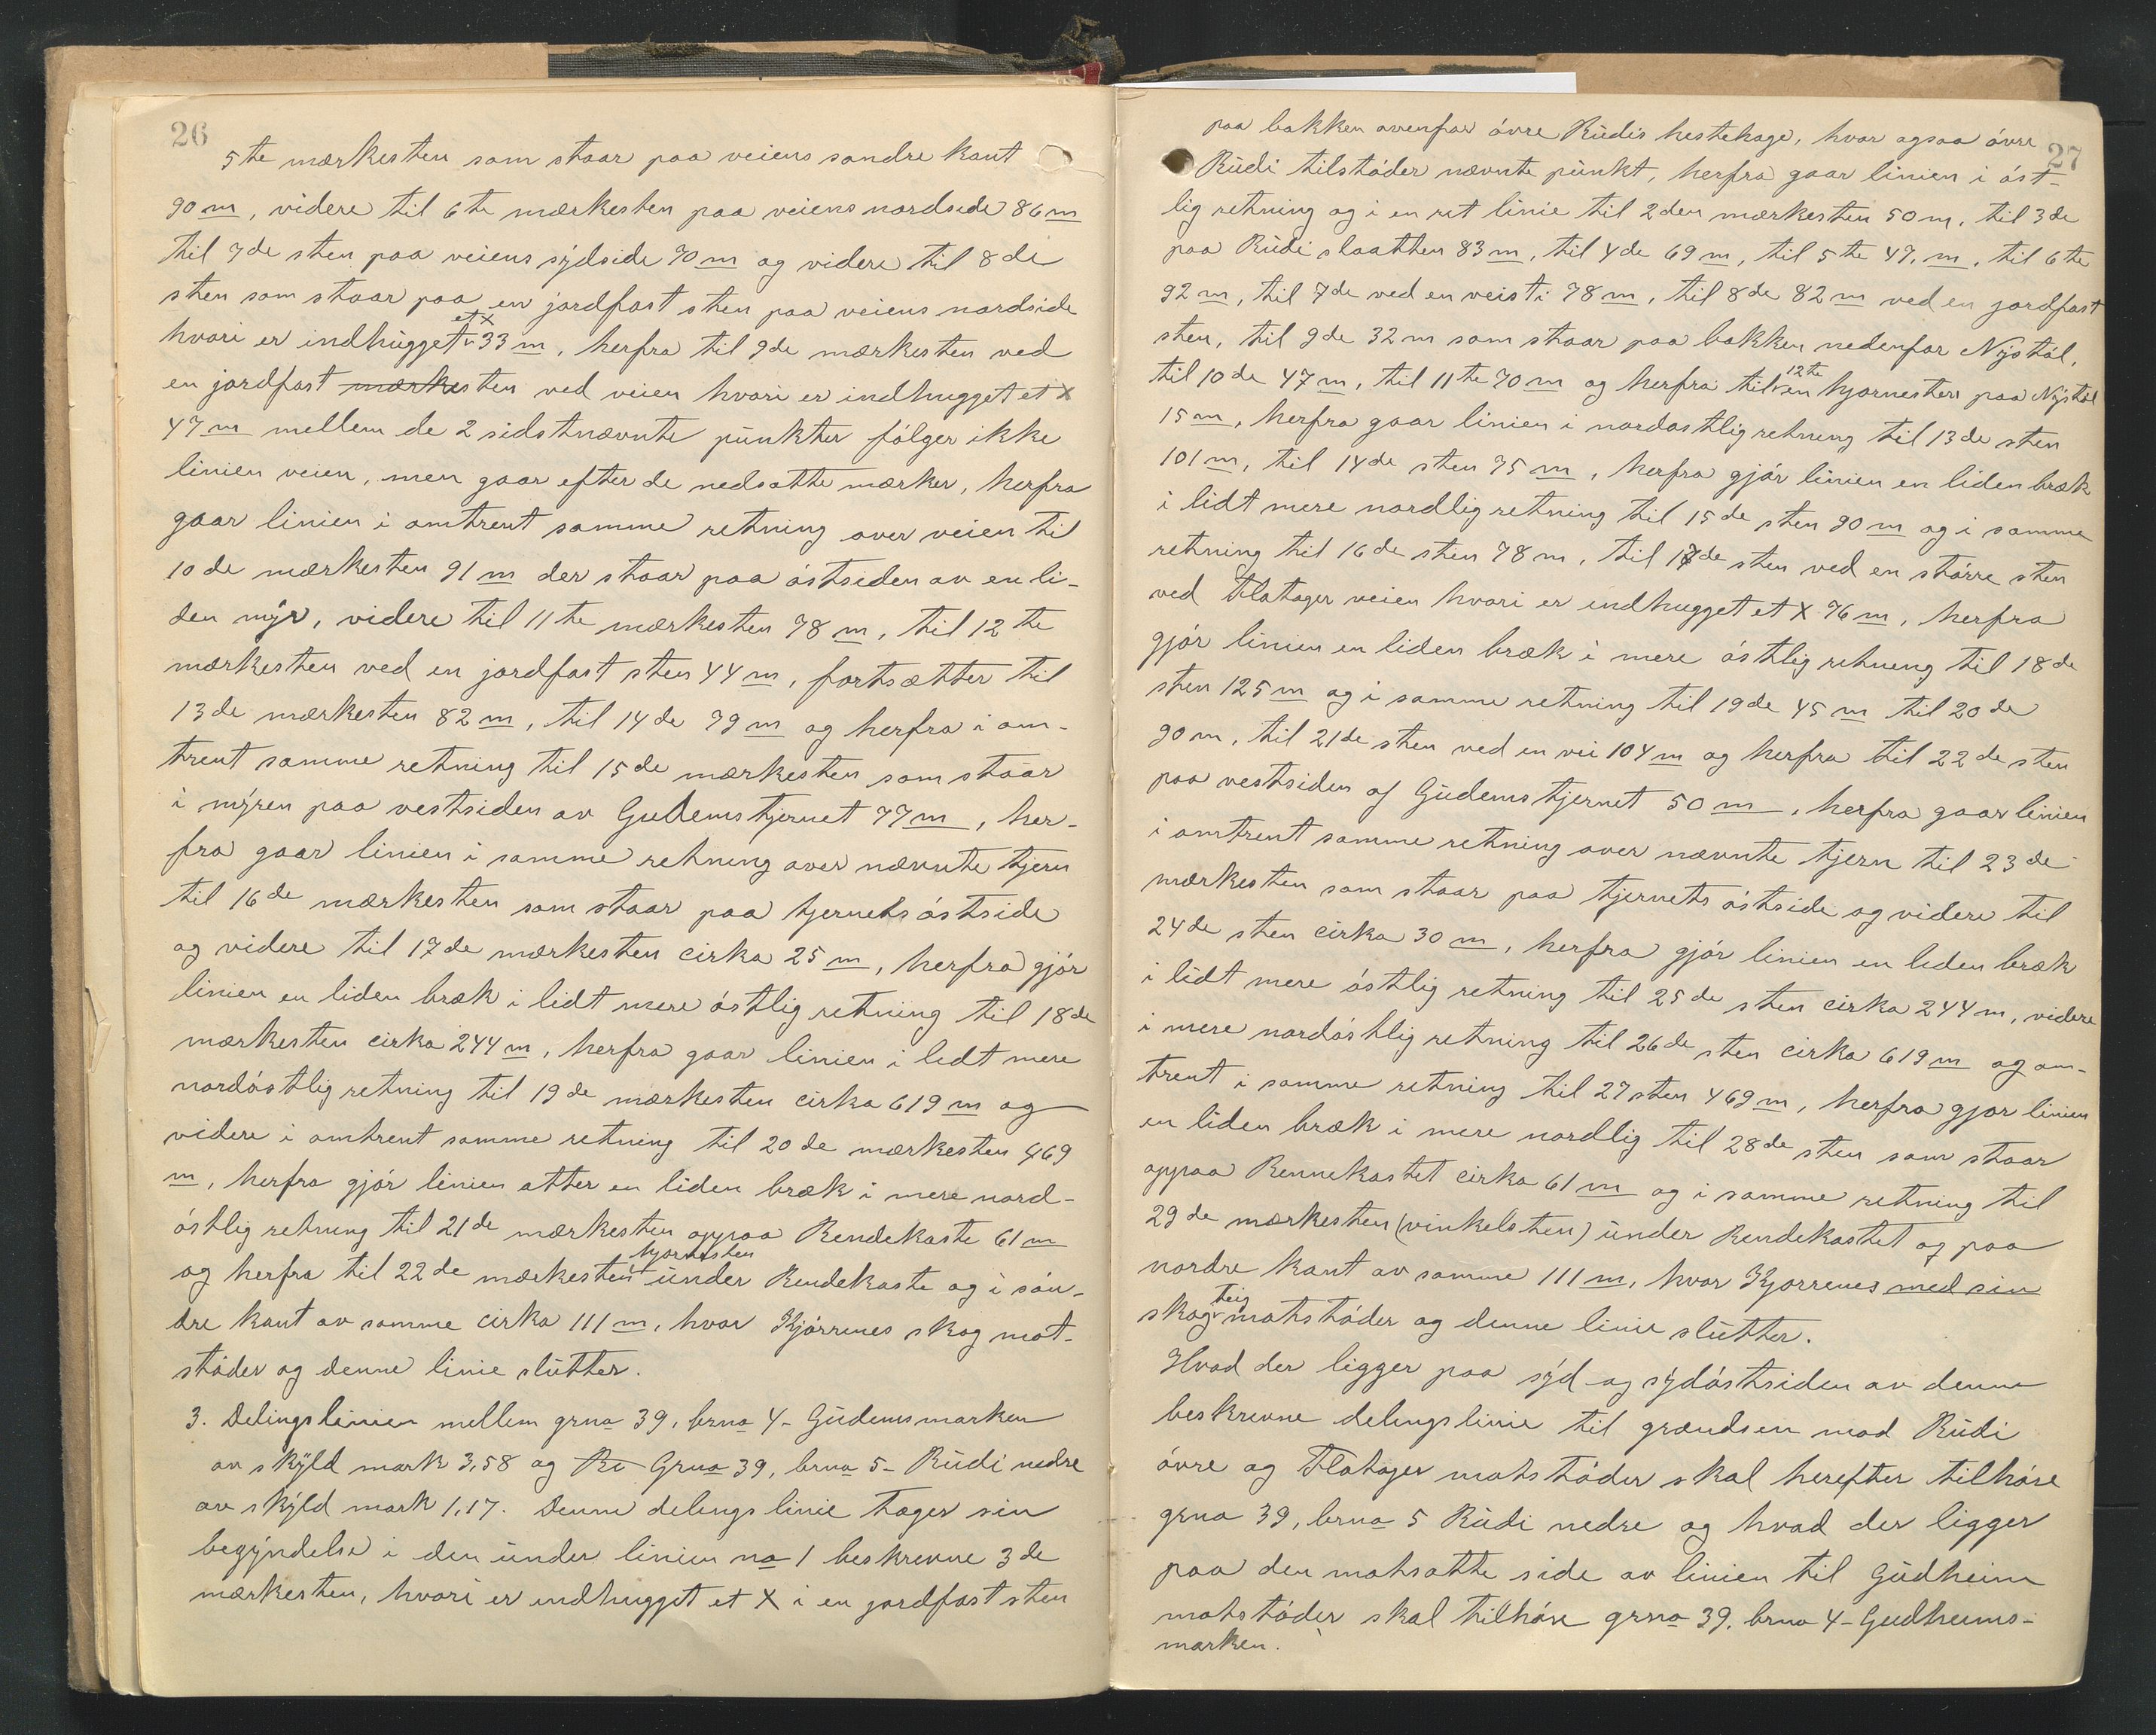 26
5te mærkesten som staar paa veiens søndre kant
90 m, videre til 6te mærkesten paa veiens nordside 86 m
til 7de sten paa veiens sydside 70 m og videre til 8de
sten som staar paa en jordfast sten paa veiens nordside
hvori er indhugget et x 33 m, herfra til 9de mærkesten ved
en jordfast mærkesten ved veien hvori er indhugget et x
47 m mellem de 2 sidstnævnte punkter følger ikke
linien veien, men gaar efter de nedsatte mærker, herfra
gaar linien i omtrent samme retning over veien til
10de mærkesten 91 m der staar paa østsiden av en li-
den myr, videre til 11te mærkesten 78 m, til 12te
mærkesten ved en jordfast sten 44 m, fortsætter til
13de mærkesten 82 m, til 14de 79 m og herfra i om-
trent samme retning til 15de mærkesten som staar
i myren paa vestsiden av Gudemstjernet 77 m, her-
fra gaar linien i samme retning over nævnte tjern
til 16de mærkesten som staar paa tjernets østside
og videre til 17de mærkesten cirka 25 m, herfra gjør
linien en liden bræk i lidt mere østlig retning til 18de
mærkesten cirka 244 m, herfra gaar linien i lidt mere
nordøstlig retning til 19de mærkesten cirka 619 m og
videre i omtrent samme retning til 20de mærkesten 469
m, herfra gjør linien atter en liden bræk i mere nord-
østlig retning til 21de mærkesten oppaa Rendekaste 61 m
og herfra til 22de mærkesten hjørnesten under Rendekaste og i søn-
dre kant av samme cirka 111 m, hvor Kjørrenes skog mot-
støder og denne linie slutter.
3. Delingslinien mellem grno 39, brno 4 - Gudemsmarken
av skyld mark 3,58 og Ru Grno 39, brno 5 - Rudi nedre
av skyld mark 1,17. Denne delingslinie tager sin
begyndelse i den under linien no 1 beskrevne 3de
mærkesten, hvori er indhugget et X i en jordfast sten
27
paa bakken ovenfor øvre Rudis hestehage, hvor ogsaa øvre
Rudi tilstøder nævnte punkt, herfra gaar linien i øst-
lig retning og i en ret linie til 2den mærkesten 50 m, til 3de
paa Rudi slaatten 83 m, til 4de 69 m, til 5te 47 m, til 6te
92 m, til 7de ved en veisti 78 m, til 8de 82 m ved en jordfast
sten, til 9de 32 m som staar paa bakken nedenfor Nystøl,
til 10de 47 m, til 11te 70 m og herfra til 12te en hjørnesten paa Nystøl
15 m, herfra gaar linien i nordøstlig retning til 13de sten
101 m, til 14de sten 75 m, herfra gjør linien en liden bræk
i lidt mere nordlig retning til 15de sten 90 m og i samme
retning til 16de sten 78 m, til 17de sten ved en større sten
ved Flatager veien hvori er indhugget et X 76 m, herfra
gjør linien en liden bræk i mere østlig retning til 18de
sten 125 m og i samme retning til 19de 45 m til 20de
90 m, til 21de sten ved en vei 104 m og herfra til 22de sten
paa vestsiden af Gudemstjernet 50 m, herfra gaar linien
i omtrent samme retning over nævnte tjern til 23de
mærkesten som staar paa tjernets østside og videre til
24de sten cirka 30 m, herfra gjør linien en liden bræk
i lidt mere østlig retning til 25de sten cirka 244 m, videre
i mere nordøstlig retning til 26de sten cirka 619 m og om-
trent i samme retning til 27 sten 469 m, herfra gjør linien
en liden bræk i mere nordlig til 28de sten som staar
oppaa Rennekastet cirka 61 m og i samme retning til
29de mærkesten (vinkelsten) under Rendekastet og paa
nordre kant av samme 111 m, hvor Kjørrenes med sin
skogteig motstøder og denne linie slutter.
Hvad der ligger paa syd og sydøstsiden av denne
beskrevne delingslinie til grændsen mod Rudi
øvre og Flatager motstøder skal herefter tilhøre
grno 39, brno 5 Rudi nedre og hvad der ligger
paa den motsatte side av linien til Gudheim
motstøder skal tilhøre grno 39, brno 4 - Gudheims-
marken.